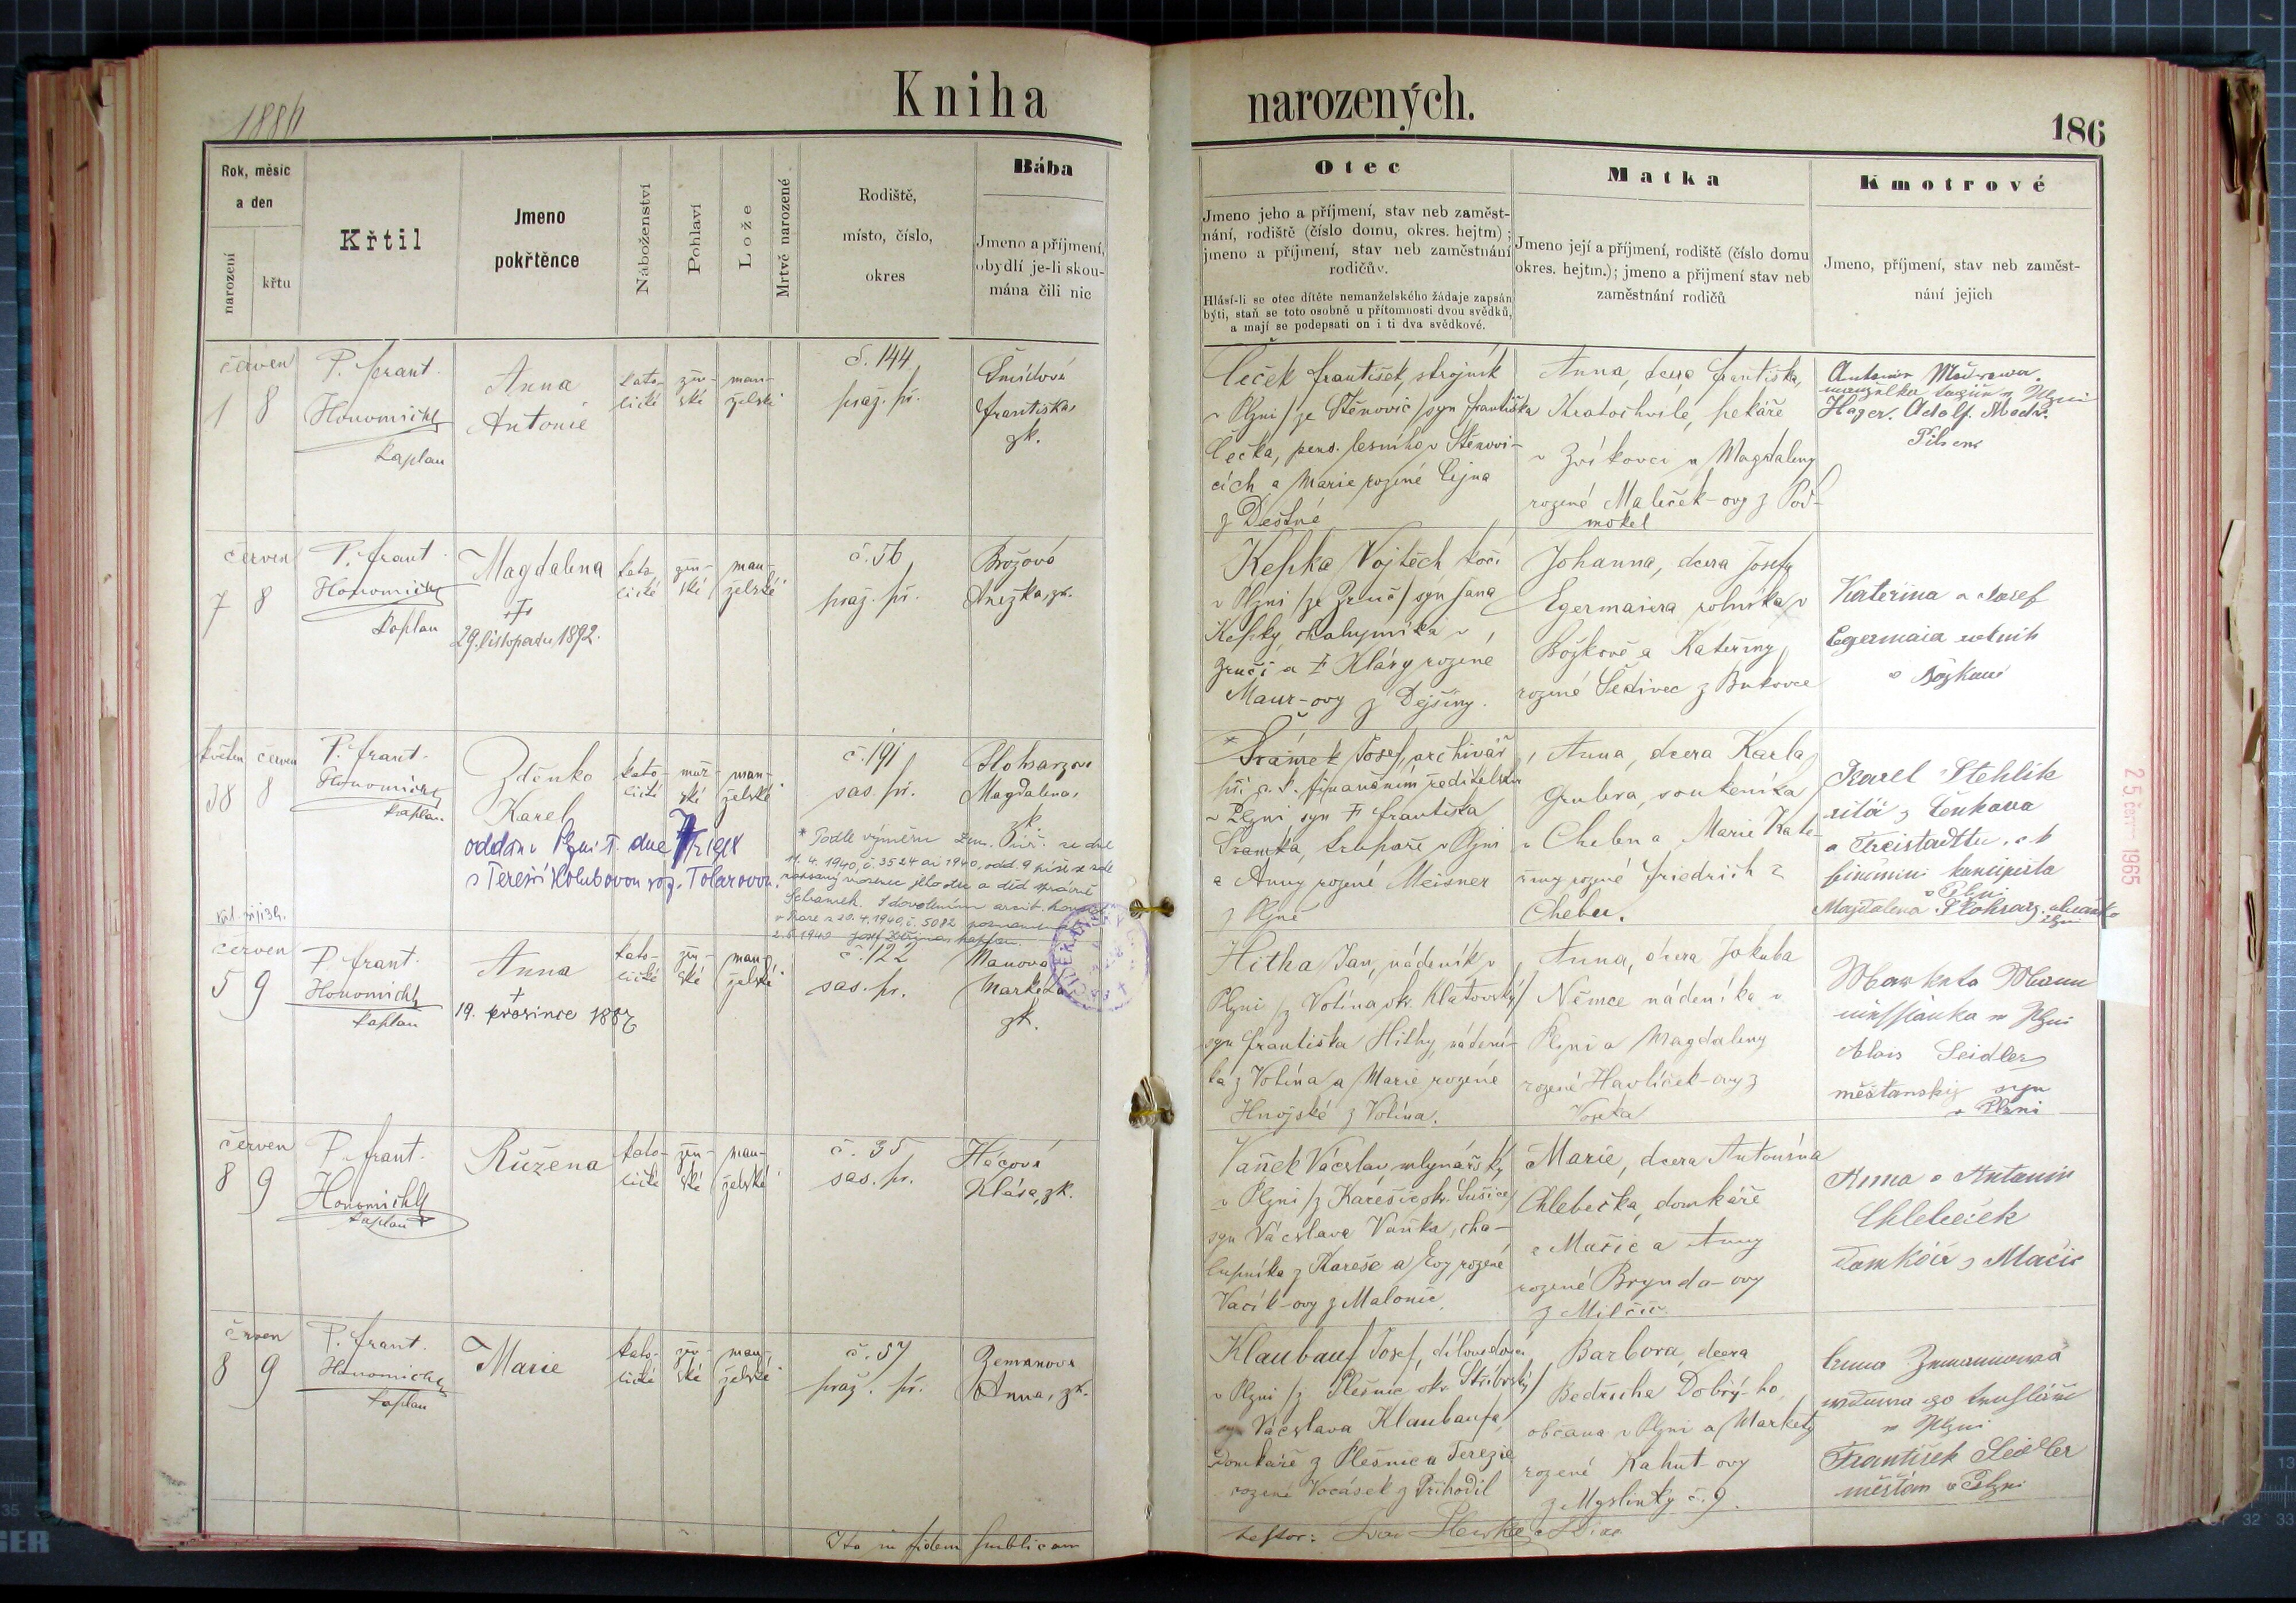 1886
Kniha
narozených.
186
Rok, měsíc
a den
narození
křtu
Křtil
Jmeno
pokřtěnce
Náboženství
Pohlaví
Lože
Mrtvě narozené
Rodiště,
místo, číslo,
okres
Bába
Jmeno a příjmení,
obydlí je-li skou-
mána čili nic
Otec
Jmeno jeho a příjmení, stav neb zaměst-
nání, rodiště (číslo domu, okres. hejtm) ;
jmeno a příjmení, stav neb zaměstnání
rodičův.
Hlásí-li se otec dítěte nemanželského žádaje zapsán
býti, staň se toto osobně u přítomnosti dvou svědků,
a mají se podepsati on i ti dva svědkové.
Matka
Jmeno její a příjmení, rodiště (číslo domu
okres. hejtm.); jmeno a příjmení stav neb
zaměstnání rodičů
Kmotrové
Jmeno, příjmení, stav neb zaměst-
nání jejich
červen
1 8
P. Frant.
Honomichl
kaplan
Anna
Antonie
kato-
lické
žen-
ské
man-
želské
č. 144
praž. př.
Šmídová
Františka
zk.
Čeček František, strojník
v Plzni /ze Štěnovic/ syn Františka
Čečka, pens. lesního v Štěnovi-
cích a Marie rozené Cejna
z Deštné
Anna, dcera Františka
Kratochvíle, pekáře
v Zvíkovci a Magdaleny
rozené Maleček-ovy z Pod-
mokel
Hager. Adolf.
Pilsen
červen
7 8
P. Frant.
Honomichl
kaplan
Magdalena
†
29. listopadu 1892.
kato-
lické
žen-
ské
man-
želské
č. 56
praž. př.
Brožová
Anežka, zk.
Kepka Vojtěch kočí
v Plzni /ze Zruč/ syn Jana
Kepky chalupníka v
Zruči a † Kláry rozené
Maur-ovy z Dejšiny.
Johanna, dcera Josefa
Egermaiera rolníka v
Božkově a Kateřiny,
rozené Šedivec z Bukovce
Kateřina a Josef
Egermaia rolník
v Božkově
květen červen
28 8
P. Frant.
Honomichl
kaplan.
Zděnko
Karel
oddán v Plzni
s Terezií Holubovou roz. Tolarovou.
kato-
lické
muž-
ské
man-
želské
č. 191
sas. př.
Magdalena,
zk
* Podle výměru
11. 4. 1940, č. 3524 ai 1940, odd. 9 píše se zde
zapsaný novorozenec jeho otec a děd správně
Schramek. S dovolením arcib. konsist.
v Praze z 20. 4. 1940, č. 5082
2.5.1940
* Šrámek Josef, archivář
při c. k. finančním ředitelstvu
v Plzni syn † Františka
Šramka, v Plzni
a Anny rozené Meisner
z Plzně
Anna, dcera Karla
Grubra, soukeníka
v Chebu a Marie Kate-
řiny rozené Friedrich z
Chebu.
Karel Stehlík
z Čenkova
a Freistadttu, c k
finanční koncipista
v Plzni
Magdalena
25 čer. 1965
červen
5 9
P. Frant.
Honomichl
kaplan
Anna
†
19. prosince 1887
kato-
lické
žen-
ské
man-
želské
č. 122
sas. př.
Manova
Marketa
zk.
Hitha Jan, nádeník v
Plzni /z Volína okr. Klatovský/
syn Františka Hithy, nádení-
ka z Volína a Marie rozené
Hnojské z Volína.
Anna, dcera Jakuba
Němce nádeníka v
Plzni a Magdaleny
rozené Havlíček-ovy z
Voseka
Alois Seidler
městanský syn
v Plzni
červen
8 9
P. Frant.
Honomichl
kaplan
Růžena
kato-
lické
žen-
ské
man-
želské
č. 35
sas. př.
Hácová
Klára, zk.
Vaněk Václav mlynářský
v Plzni /z Karešic okr. Sušice/
syn Václava Vaňka, cha-
lupníka z Karešic a Evy rozené
Vacík-ovy z Malonic.
Marie, dcera Antonína
Chlebečka, domkáře
z Mačic a Anny
rozené Brynda-ovy
z Milčic
Anna a Antonin
Chlebeček
domkář z Mačic
červen
8 9
P. Frant.
Honomichl
kaplan
Marie
kato-
lické
žen-
ské
man-
želské
č. 57
praž. př.
Zemanova
Anna, zk.
Klaubauf Josef, dílovedoucí
v Plzni /z Plešnic okr. Stříbrský/
syn Václava Klaubaufa,
domkáře z Plešnic a Terezie
rozené Vocásek z Přihodil
Barbora, dcera
Bedřicha Dobrý-ho,
občana v Plzni a Markety
rozené Kahut-ovy
z Myslinky č. 9.
v Plzni
František Seidler
měšťan v Plzni
Ita in fidem publicam